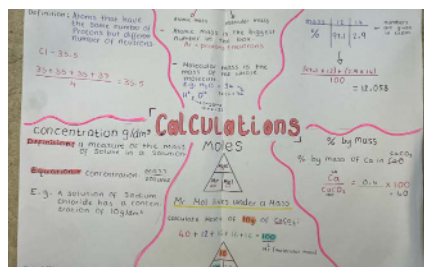 Definition: Atoms that have
the same number of
Protons but different
number of neutrons
Cl - 35.5
35 + 35 + 35 + 37
4
= 35.5
atomic mass
molecular mass
- Atomic mass is the biggest
number in the box
- Molecular mass is the
mass of the whole
molecule
E.g. H₂O
mass 12 14
%
numbers
are given
100
= 12.058
Calculations
concentration g/dm³
Definition: a measure of the mass
of solute in a solution
Equation: concentration mass
volume
E.g. A solution of Sodium
chloride has a concen-
tration of 10g/dm³
Moles
Mr Mol lives under a Mass
calculate moles of 10g of CaCO₃:
40 + 12 + 16 + 16 + 16 = 100
% by mass
% by mass of Ca in CaCO₃
Ca
CaCO₃
= 0.4 × 100
= 40